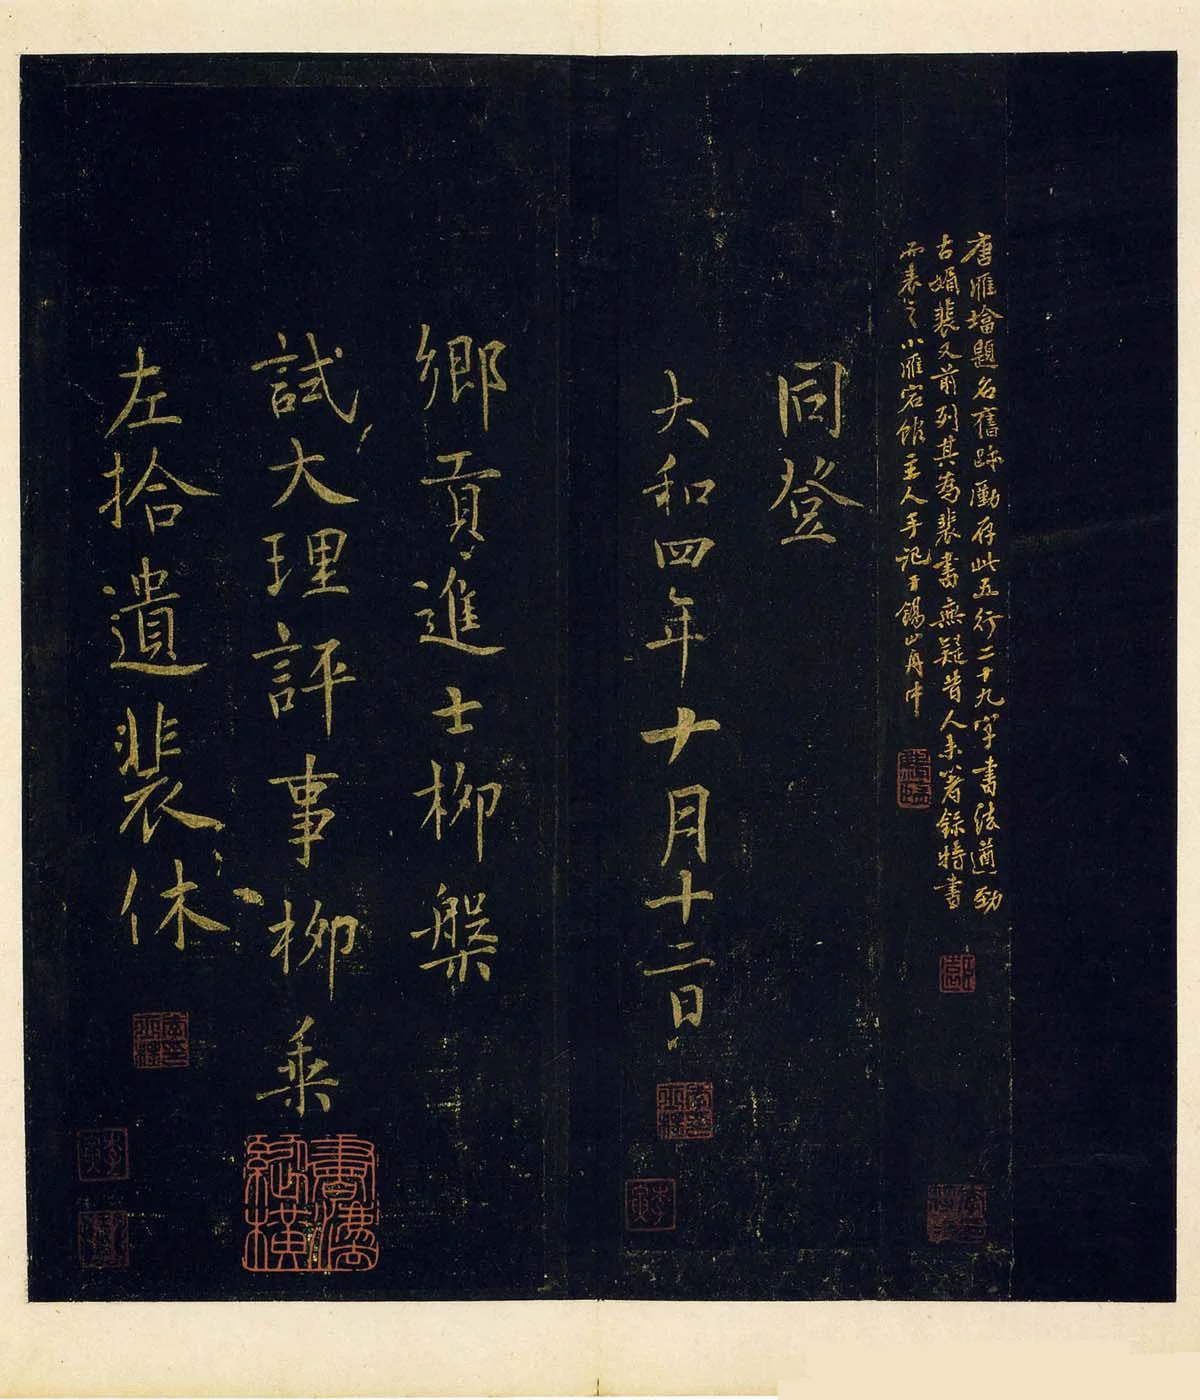 左拾遺裴休
試大理評事柳乘
鄉貢進士柳槃
大和四年十月十二日
同登
唐雁墖題名舊跡存此五行二十九字書法遒勁
古媚裴又前列其為裴書無疑昔人未著錄特書
而表之小雁宕館主人手記于錫山舟中